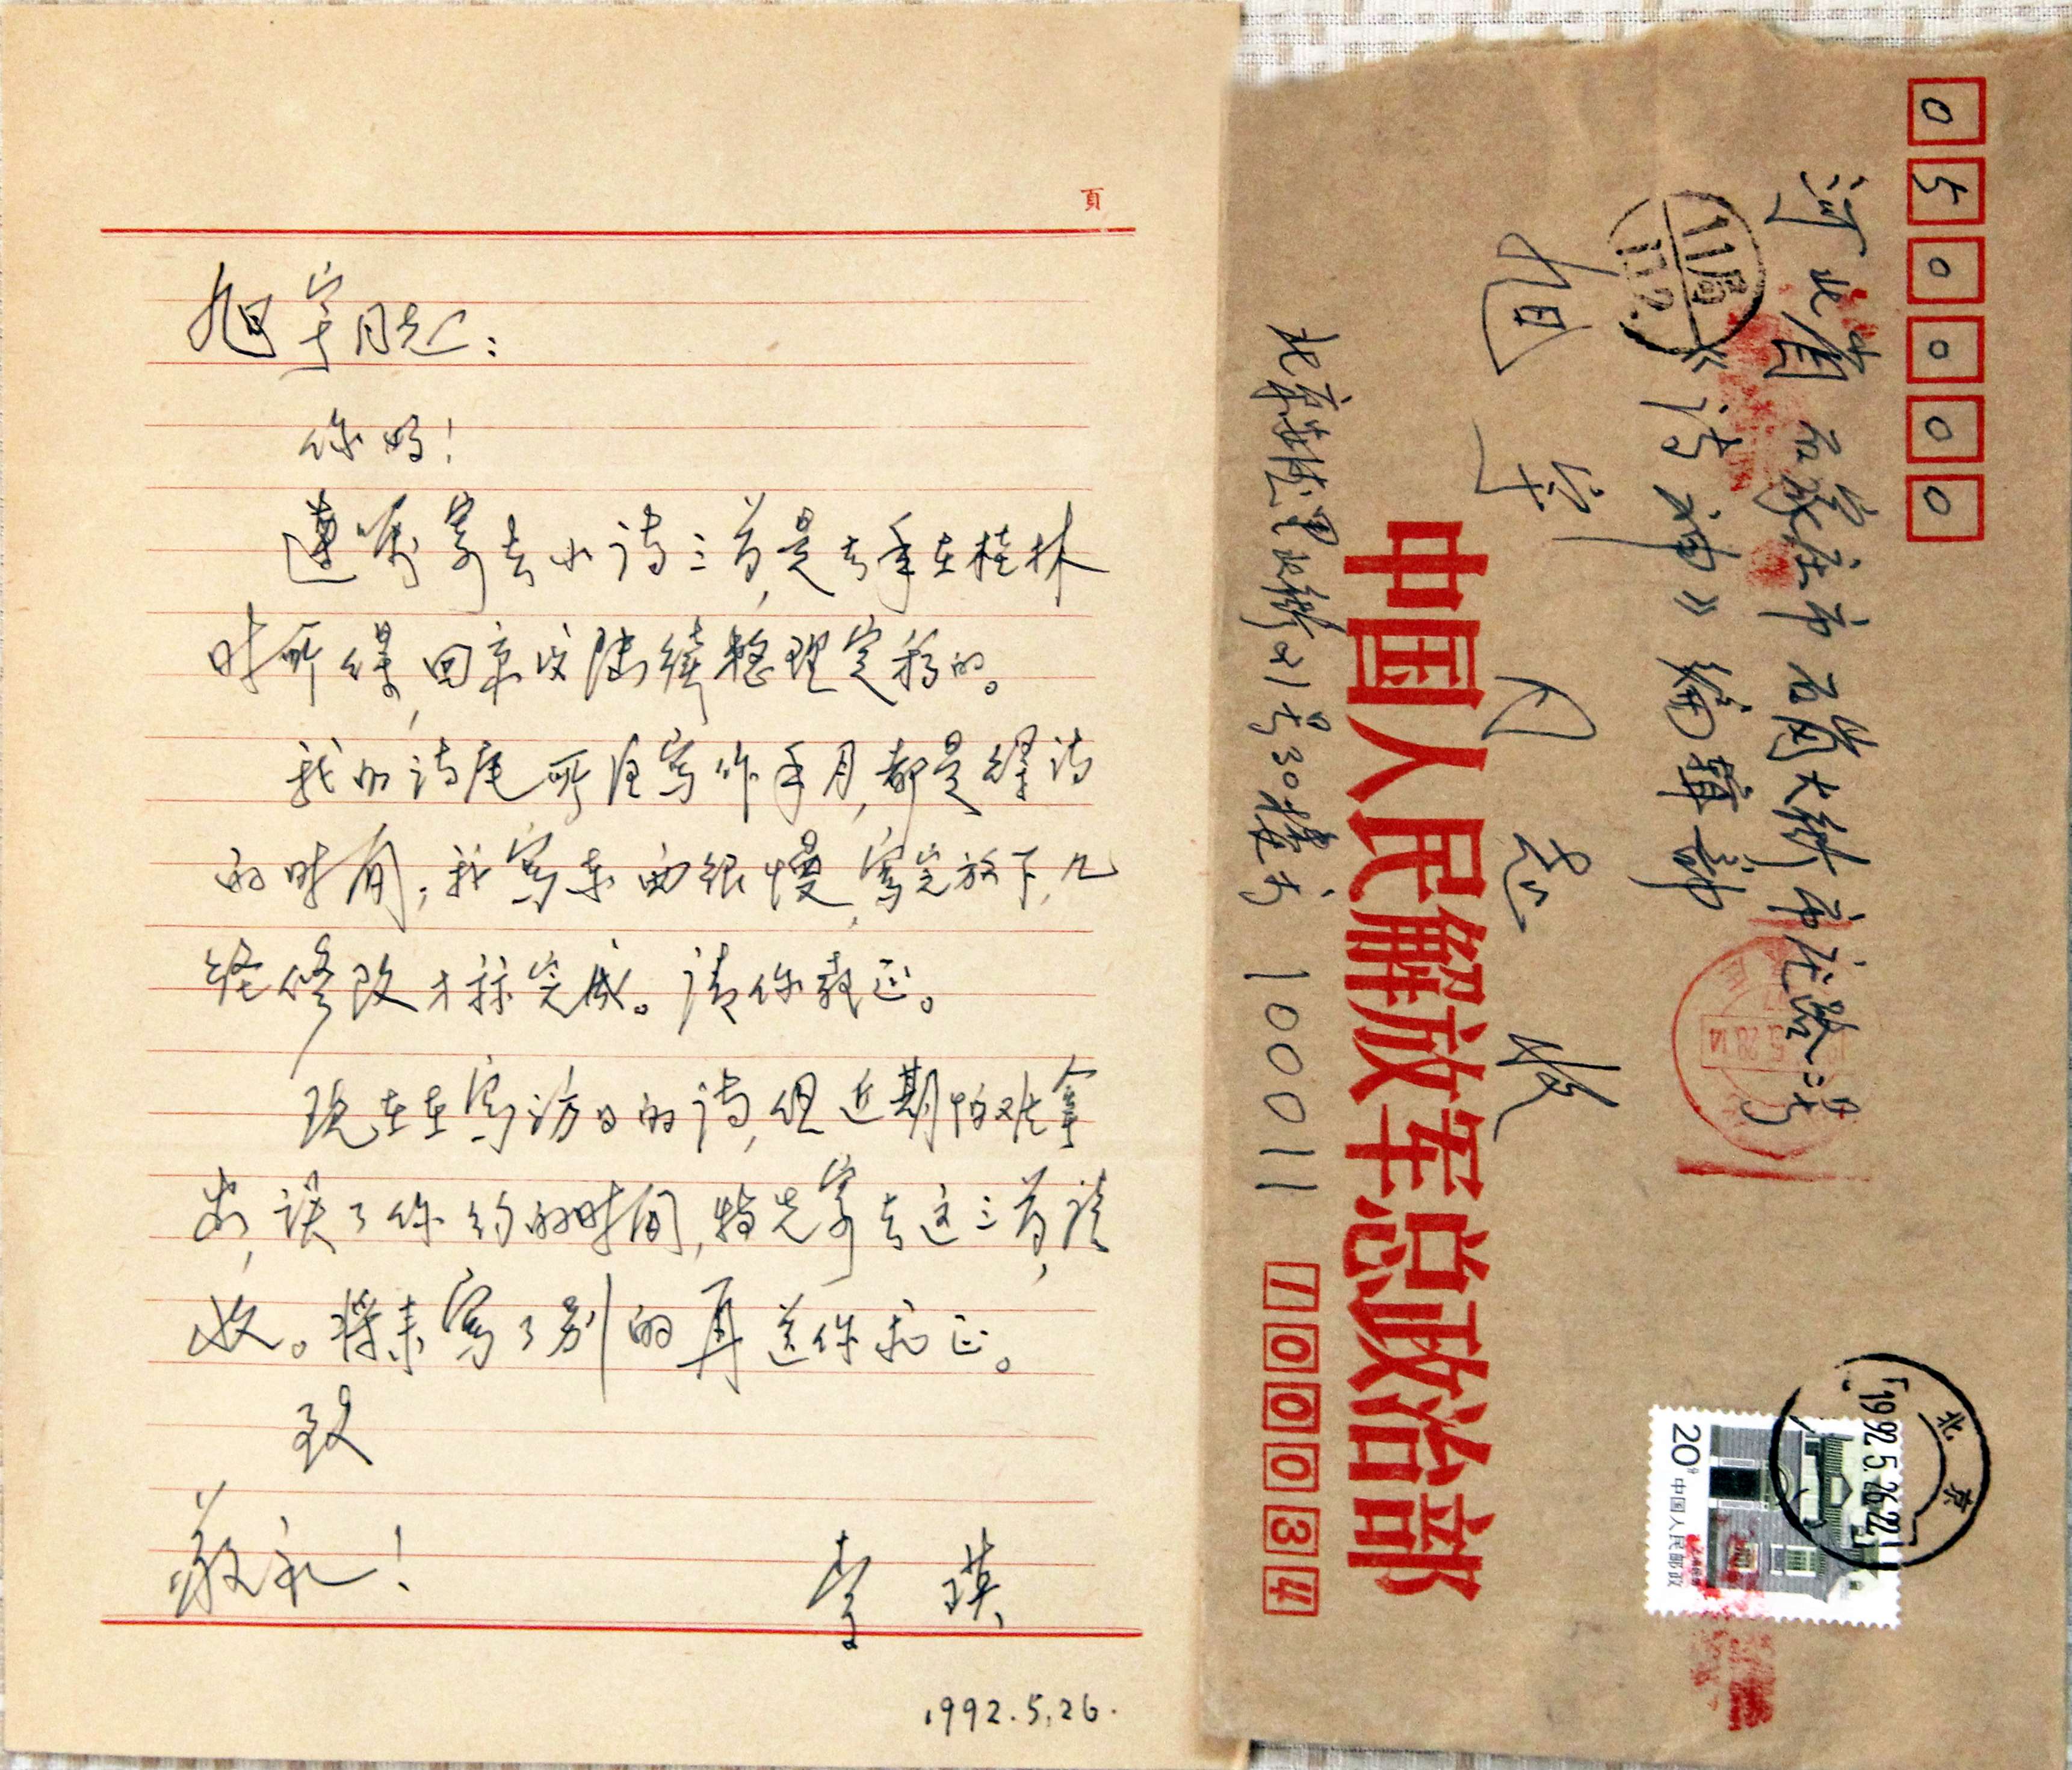 頁
旭宇同志：
你好！
遵嘱寄去小诗三首，是去年在桂林
时所得，回京后陆续整理定稿的。
我的诗尾所注写作年月，都是得诗
的时间；我写东西很慢，写完放下，几
经修改才释完成。请你教正。
现在在写访日的诗，但近期怕难拿
出，误了你约的时间，特先寄去这三首，请
收。将来写了别的再送你求正。
致
敬礼！
李瑛
1992.5.26.
050000
河北省石家庄市石岗大街市庄路2号
《诗神》编辑部
旭宇同志收
中国人民解放军总政治部
21号30楼 100011
100034
11局
北京
1992.5.26.22
20分 中国人民邮政